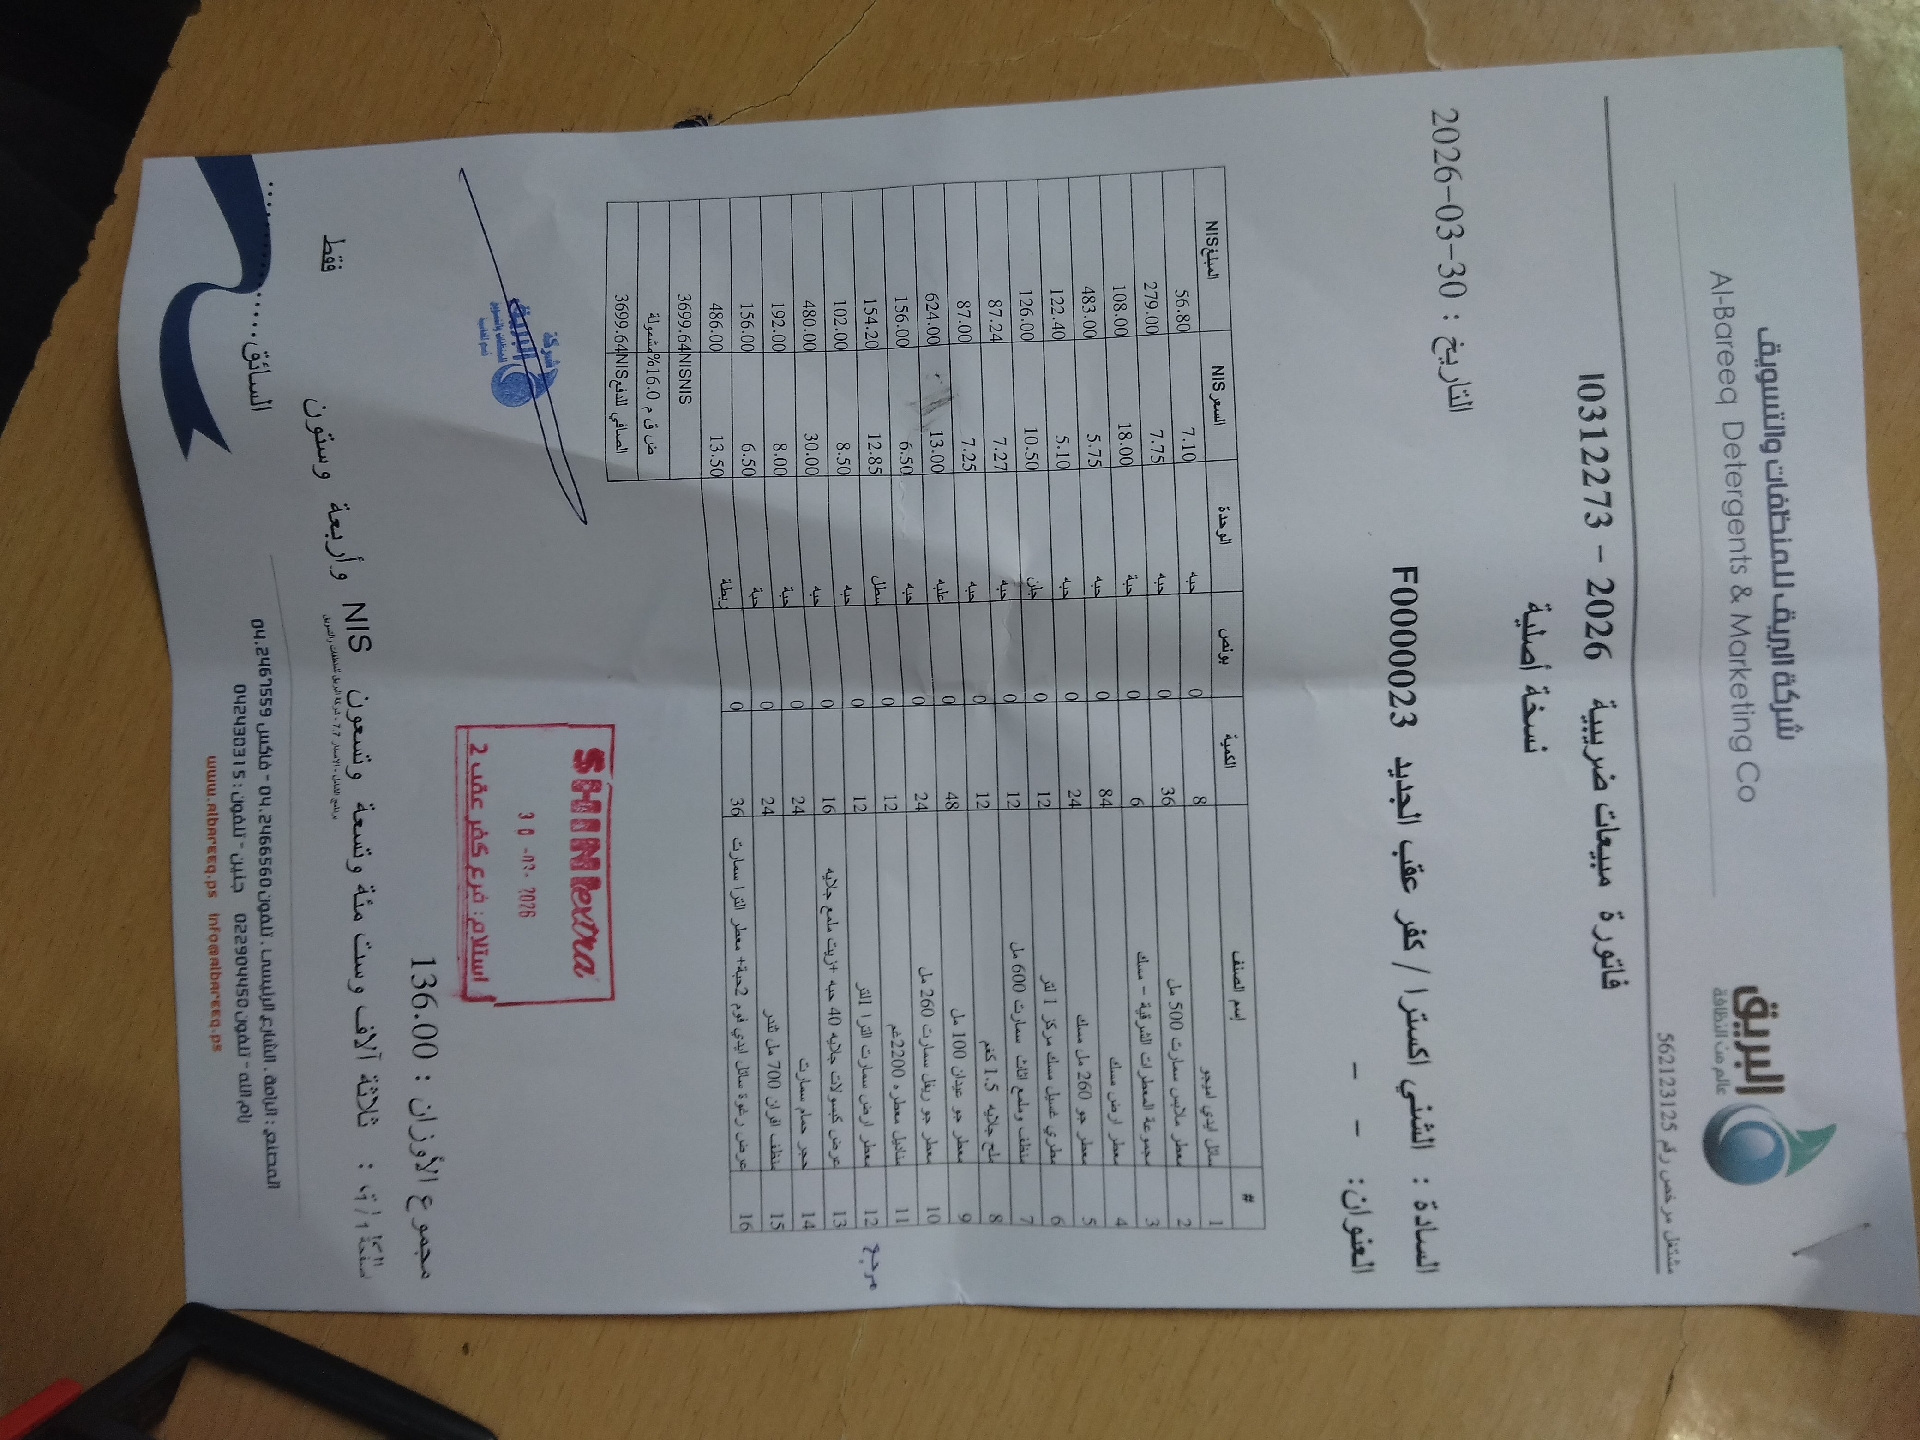 شركة البريق للمنظفات والتسويق
Al-Bareeq Detergents & Marketing Co
البريق
عالم من النظافة
مشتغل مرخص رقم 562123125
فاتورة مبيعات ضريبية 2026 - I0312273
نسخة أصلية
التاريخ : 2026-03-30
السادة : الشني اكسترا / كفر عقب الجديد F0000023
العنوان: - -
# إسم الصنف الكمية بونص الوحدة السعر NIS المبلغ NIS
1 سائل ايدي اميجو 8 0 حبه 7.10 56.80
2 معطر ملابس سمارت 500 مل 36 0 حبه 7.75 279.00
3 مجموعة المعطرات الشرقية - مسك 6 0 حبة 18.00 108.00
4 معطر ارض مسك 84 0 حبه 5.75 483.00
5 معطر جو 260 مل مسك 24 0 حبه 5.10 122.40
6 مطري غسيل مسك مركز 1 لتر 12 0 جالن 10.50 126.00
7 منظف وملمع اثاث سمارت 600 مل 12 0 حبه 7.27 87.24
8 ملح جلايه 1.5 كغم 12 0 حبه 7.25 87.00
9 معطر جو عيدان 100 مل 48 0 علبه 13.00 624.00
10 معطر جو ريفل سمارت 260 مل 24 0 حبه 6.50 156.00
11 مناديل معطره 2200غم 12 0 سطل 12.85 154.20
12 معطر ارض سمارت الترا 1لتر 12 0 حبه 8.50 102.00
13 عرض كبسولات جلايه 40 حبه +زيت ملمع جلايه 16 0 حبه 30.00 480.00
14 حجر حمام سمارت 24 0 حبة 8.00 192.00
15 منظف افران 700 مل ثندر 24 0 حبة 6.50 156.00
16 عرض رغوة سائل ايدي فوم 2حبة+ معطر الترا سمارت 36 0 ربطة 13.50 486.00
مرجع
3699.64NISNIS
ض ق م 16.0% مشمولة
الصافي للدفع 3699.64NIS
SHINI extra
30 -03- 2026
استلام: فرع كفر عقب 2
شركة
البريق
للمنظفات والتسويق
مجموع الأوزان : 136.00
ثلاثة آلاف وست مئة وتسعة وتسعون NIS وأربعة وستون فقط
صفحة 1 / 1
السائق..............
المصنع : الرامة . الشارع الرئيسي . تلفون 04.2466560 - فاكس 04.2467559
رام الله - تلفون 022904450 جنين - تلفون : 042430315
www.albareeq.ps info@albareeq.ps